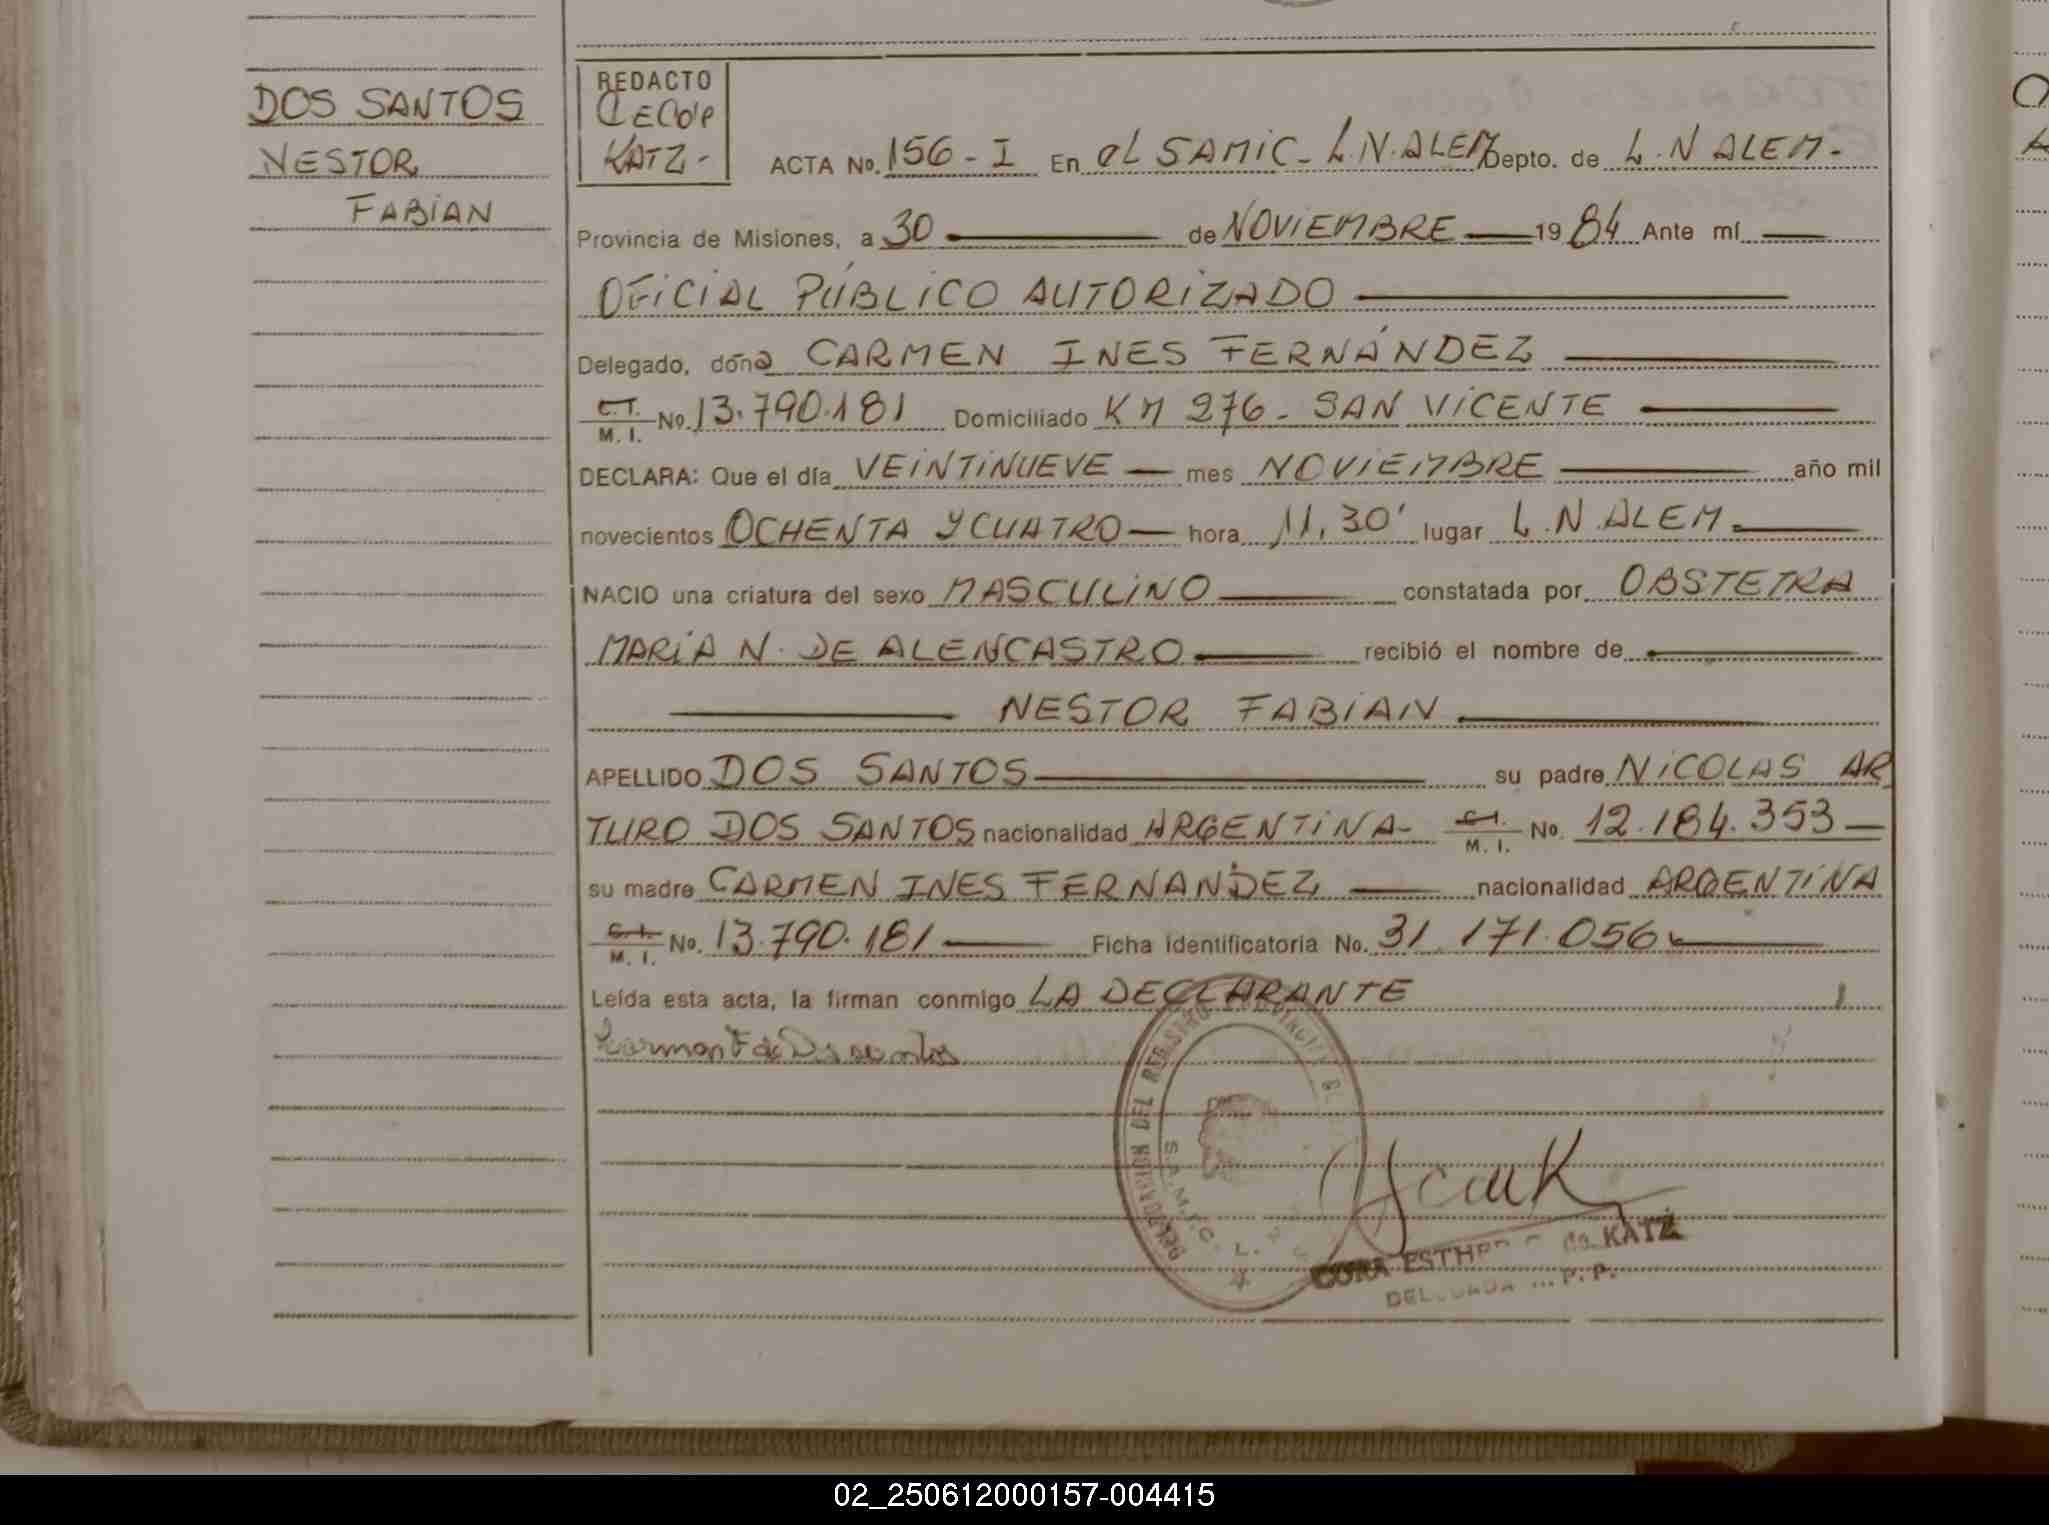 DOS SANTOS
NESTOR
FABIAN
REDACTO
KATZ-
ACTA No. 156 - I En el SAMIC - L.N. ALEM Depto. de L.N ALEM-
Provincia de Misiones, a 30 de NOVIEMBRE 1984 Ante mí
OFICIAL PÚBLICO AUTORIZADO
Delegado, doña CARMEN INES FERNÁNDEZ
C.I. M. I. No. 13.790.181 Domiciliado KM 276 - SAN VICENTE
DECLARA: Que el día VEINTINUEVE mes NOVIEMBRE año mil
novecientos OCHENTA Y CUATRO hora 11,30' lugar L.N.ALEM
NACIO una criatura del sexo MASCULINO constatada por OBSTETRA
MARIA N. DE ALENCASTRO recibió el nombre de
NESTOR FABIAN
APELLIDO DOS SANTOS su padre NICOLAS AR
TURO DOS SANTOS nacionalidad ARGENTINA- C.I. M. I. No. 12.184.353
su madre CARMEN INES FERNANDEZ nacionalidad ARGENTINA
C.I. M. I. No. 13.790.181 Ficha identificatoria No. 31.171.056
Leída esta acta, la firman conmigo LA DECLARANTE
DELEGACION DEL REGISTRO PROVINCIAL
S.A.M.I.C. L.
ESTHER de KATZ
DELEGADA R.P.P.
02_250612000157-004415